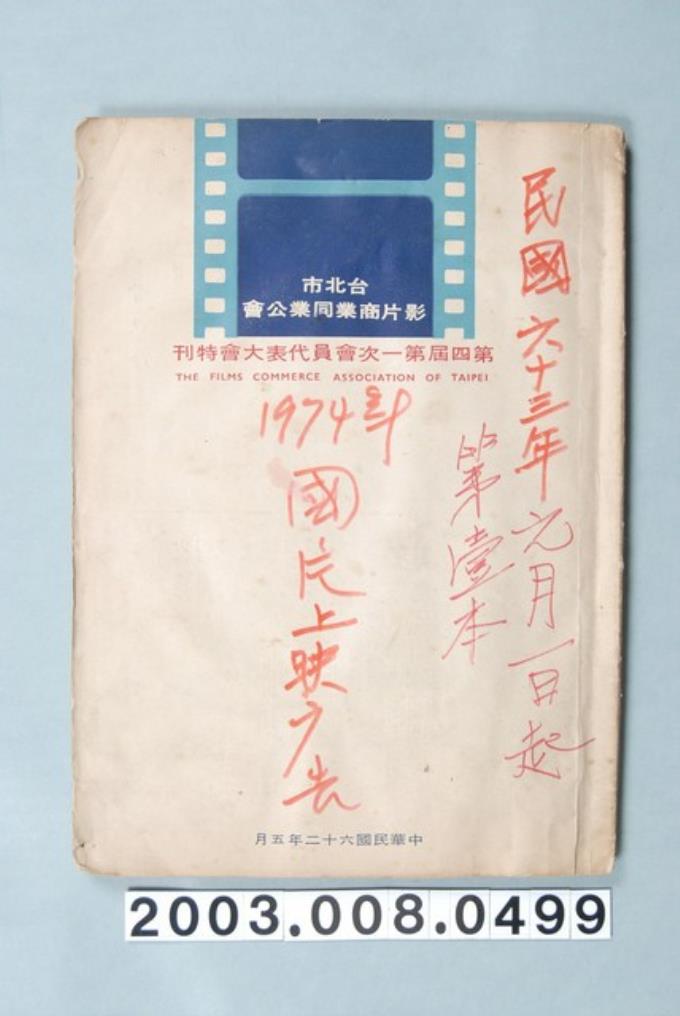 台北市
影片商業同業公會
第四屆第一次會員代表大會特刊
THE FILMS COMMERCE ASSOCIATION OF TAIPEI
民國六十三年元月一日起
第壹本
1974年
國片上映广告
中華民國六十二年五月
2003.008.0499